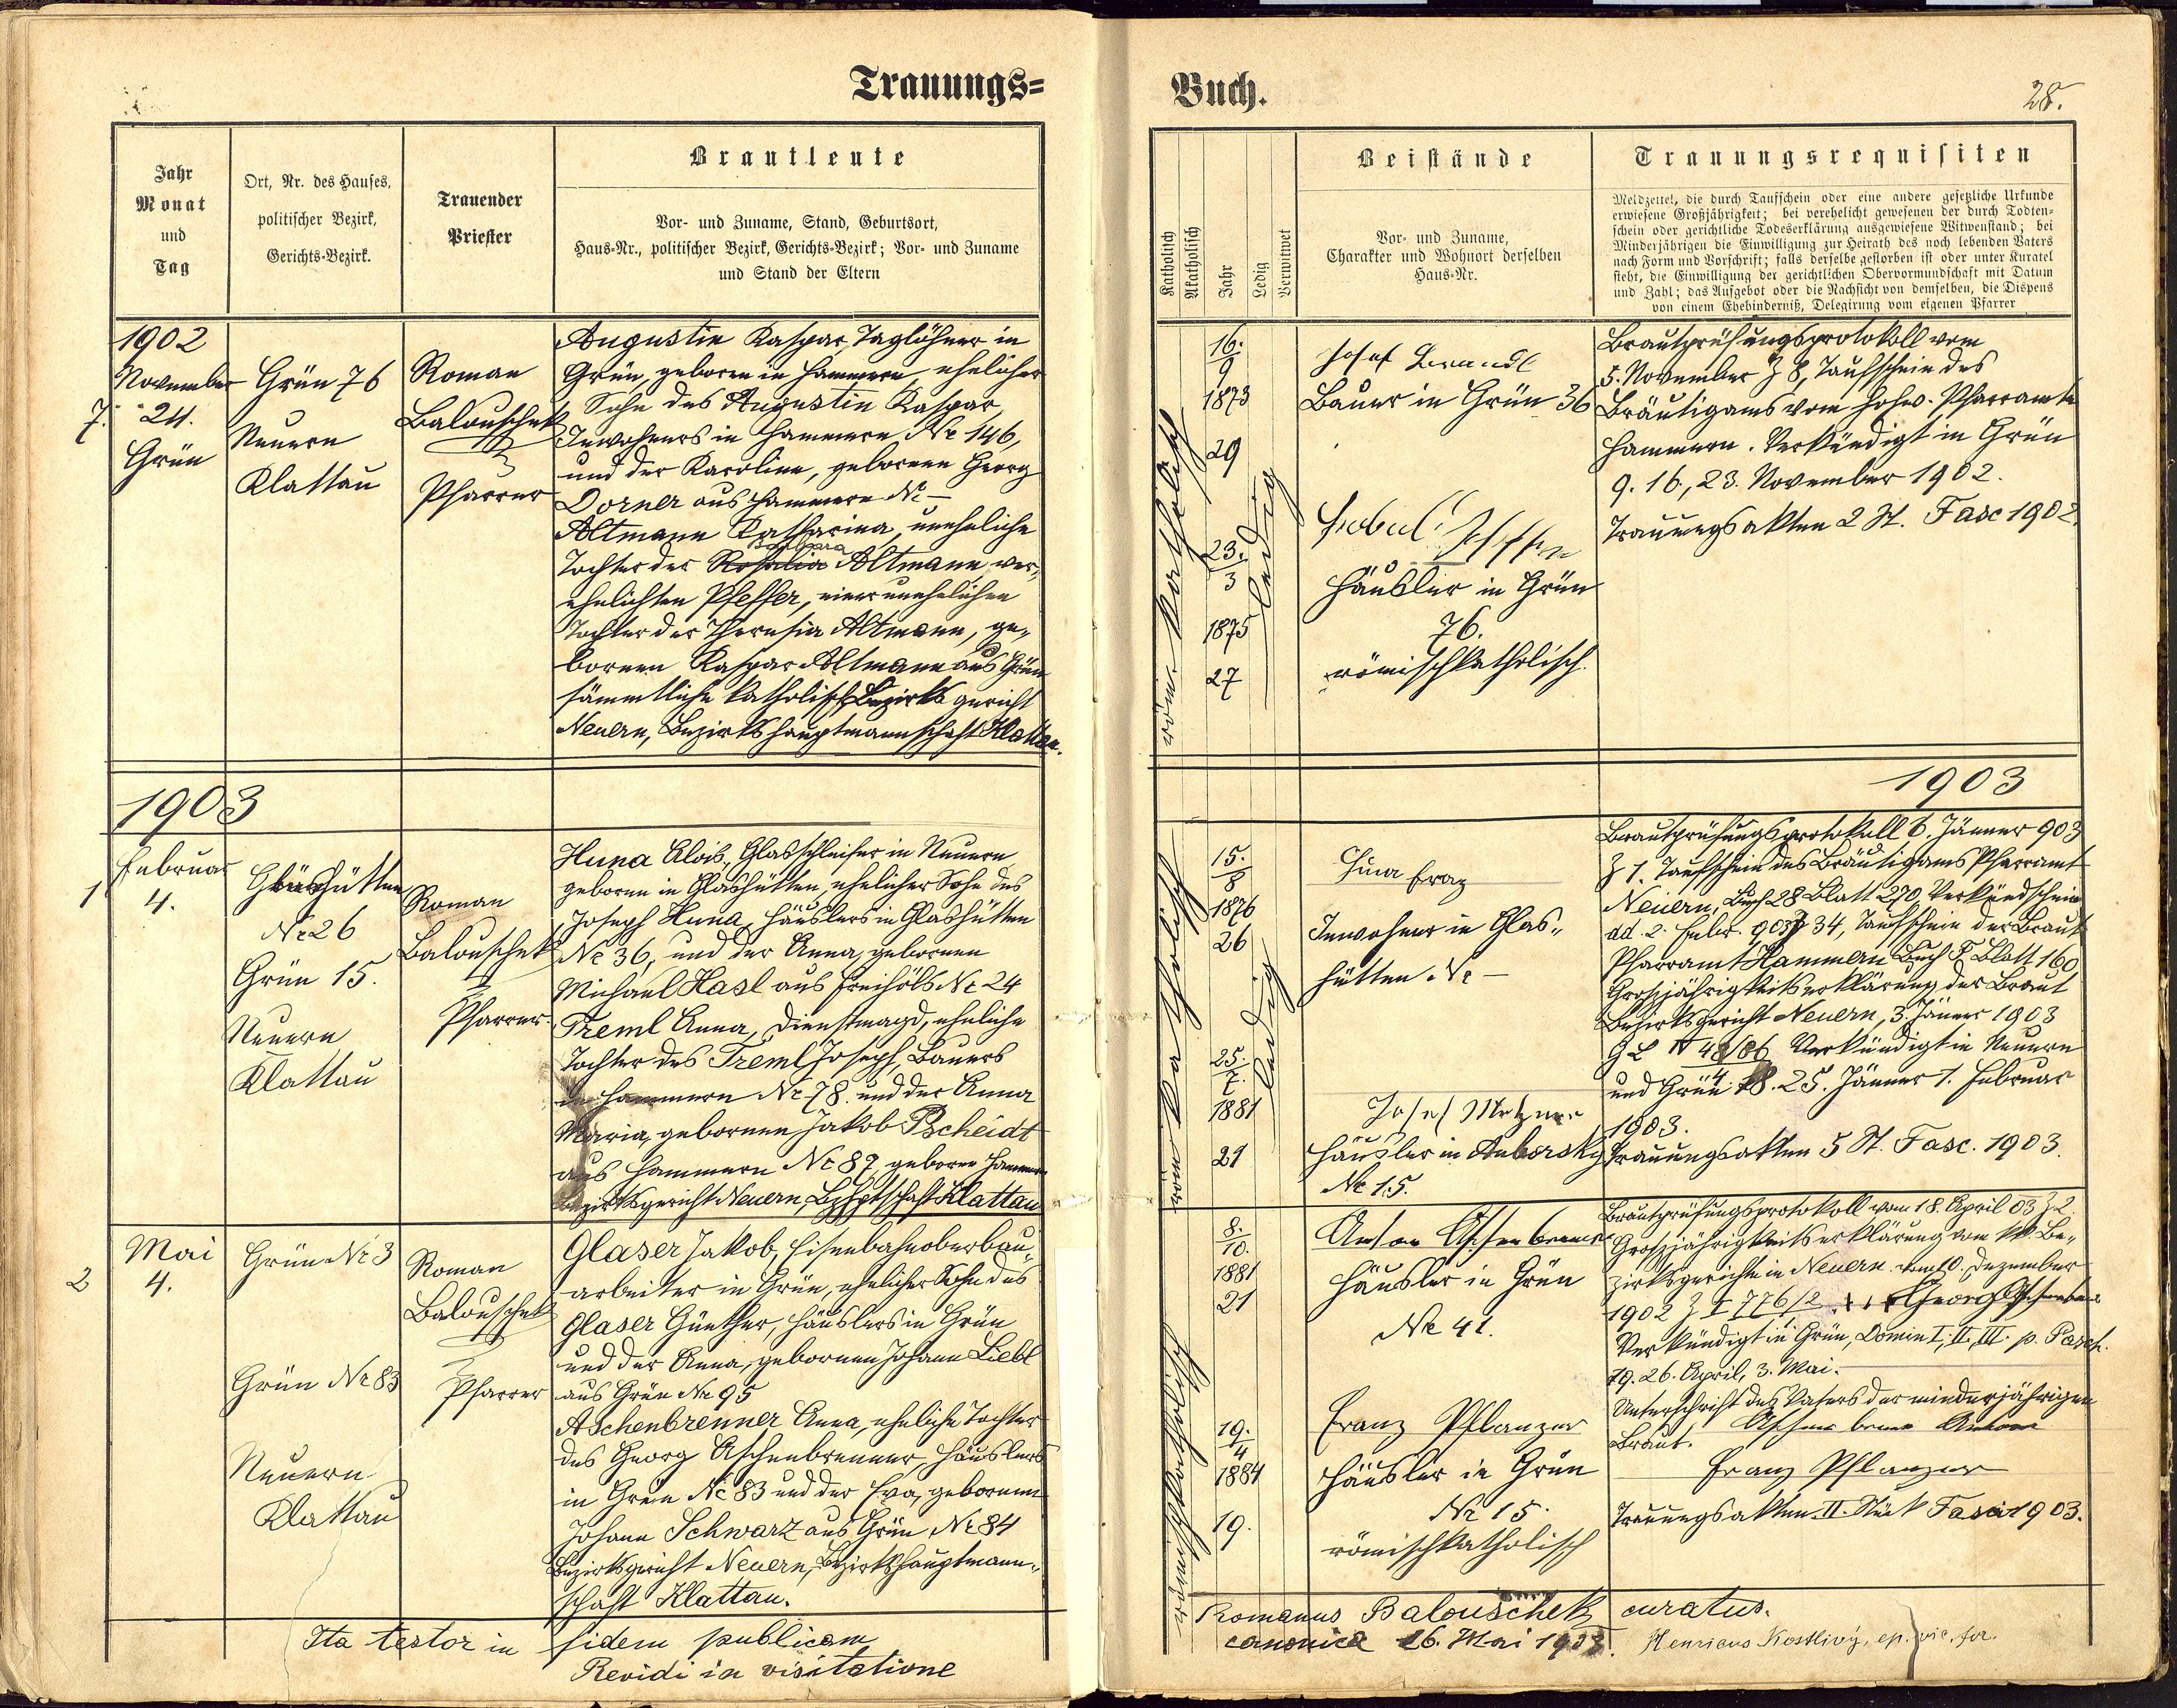 Trauungs=
Jahr
Monat
und
Tag
Ort, Nr. des Hauses,
politischer Bezirk,
Gerichts-Bezirk.
Trauender
Priester
Brautleute
Vor- und Zuname, Stand, Geburtsort,
Haus-Nr., politischer Bezirk, Gerichts-Bezirk; Vor- und Zuname
und Stand der Eltern
1902
November
7. 24.
Grün
Grün 76
Neuern
Klattau
Roman
Balouschek
Pfarrer
Augustin Kaspar, Taglöhner in
Grün, geboren in Hammern ehelicher
Sohn des Augustin Kaspar,
Inwohners in Hammern, Nr 146,
und der Karoline, geborenen Georg
Dorner aus Hammern Nr –
Altmann Katharina, uneheliche
Barbara
Tochter der Rosalia Altmann ver„
ehelichten Pfeffer, einer unehelichen
Tochter der Theresia Altmann, ge„
bornen Kaspar Altmann aus Grün
sämmtliche katholisch Bezirksgericht
Neuern, Bezirkshauptmannschaft Klattau.
1903
Februar
1 4.
Glashütten
Nr 26
Grün 15.
Neuern
Klattau
Roman
Balouschek
Pfarrer.
Huna Alois, Glasschleifer in Neuern
geboren in Glashütten, ehelicher Sohn des
Joseph Huna, Häuslers in Glashütten
Nr 36, und der Anna, gebornen
Michael Hasl aus Freihöls Nr 24
Treml Anna, Dienstmagd, eheliche
Tochter des Treml Joseph, Bauers
in Hammern Nr 78. und der Anna
Maria, gebornen Jakob Pscheidt
aus Hammern Nr 87, geboren Hammern
Bezirksgericht Neuern, Bzhptschaft Klattau
Mai
2 4.
Grün Nr 3
Grün Nr 83
Neuern
Klattau
Roman
Balouschek
Pfarrer
Glaser Jakob, Eisenbahnoberbau„
arbeiter in Grün, ehelicher Sohn des
Glaser Günther, Häuslers in Grün
und der Anna, gebornen Johann Liebl
aus Grün Nr 95
Aschenbrenner Anna, eheliche Tochter
des Georg Aschenbrenner, Häuslers
in Grün Nr 83 und der Eva, gebornen
Johann Schwarz aus Grün Nr 84
Bezirksgericht Neuern, Bezirkshauptmann„
schaft Klattau.
Ita testor in fidem publicam
Revidi in visitatione
Buch.
28.
Katholisch
Akatholisch
Jahr
Ledig
Verwitwet
Beistände
Vor- und Zuname,
Charakter und Wohnort derselben
Haus-Nr.
Trauungsrequisiten
Meldzettel, die durch Taufschein oder eine andere gesetzliche Urkunde
erwiesene Großjährigkeit; bei verehelicht gewesenen der durch Todten-
schein oder gerichtliche Todeserklärung ausgewiesene Witwenstand; bei
Minderjährigen die Einwilligung zur Heirath des noch lebenden Vaters
nach Form und Vorschrift; falls derselbe gestorben ist oder unter Kuratel
steht, die Einwilligung der gerichtlichen Obervormundschaft mit Datum
und Zahl; das Aufgebot oder die Nachsicht von demselben, die Dispens
von einem Ehehinderniß, Delegirung vom eigenen Pfarrer
röm. katholisch
16.
9
1873
29
23.
3
1875
27
ledig
Josef
Bauer in Grün 36
Häusler in Grün
76.
römischkatholisch.
Brautprüfungsprotokoll vom
5. November Z 8, Taufschein des
Bräutigams vom hohw. Pfarramte
Hammern. Verkündigt in Grün
9. 16., 23. November 1902.
Trauungsakten 2 St. Fasc 1902.
1903
röm katholisch
15.
8
1876
26
25.
7.
1881
21
ledig
Huna Franz
Inwohner in Glas„
hütten Nr –
Josef Metzner
Häusler in Auborsky
Nr 15.
Brautprüfungsprotokoll 6. Jänner 903
Z 1. Taufschein des Bräutigams Pfarramt
Neuern, Buch 28 Blatt 270, Verkündschein
dd. 2. Febr. 903 Z 34, Taufschein der Braut
Pfarramt Hammern Buch F Blatt 160
Großjährigkeitserklärung der Braut
Bezirksgericht Neuern, 3. Jänner 1903
Verkündigt in Neuern
und Grün 18. 25. Jänner 1. Februar
1903.
Trauungsakten 5 St. Fasc. 1903.
römischkatholisch
8.
10.
1881
21
19.
4
1884
19.
Anton Aschenbrenner
Häusler in Grün
Nr 41.
Franz Pflanzer
Häusler in Grün
Nr 15.
römischkatholisch
Brautprüfungsprotokoll vom 18. April 03 Z 2.
Großjährigkeitserklärung vom kk. Be„
zirksgerichte in Neuern vom 10. Dezember
1902 Z I 776/2 +++ Georg Aschenbre
Verkündigt in Grün, Domin I, II, III. p. Pasch.
19. 26. April, 3. Mai.
Unterschrift des Vaters der minderjährigen
Braut. Aschenbrenner Anton
Franz Pflanzer
Trauungsakten II. Stück Fasc. 1903.
Romanus Balouschek curatus.
canonica 26. Mai 1903. Henricus Kostlivý, ep. vic. for.